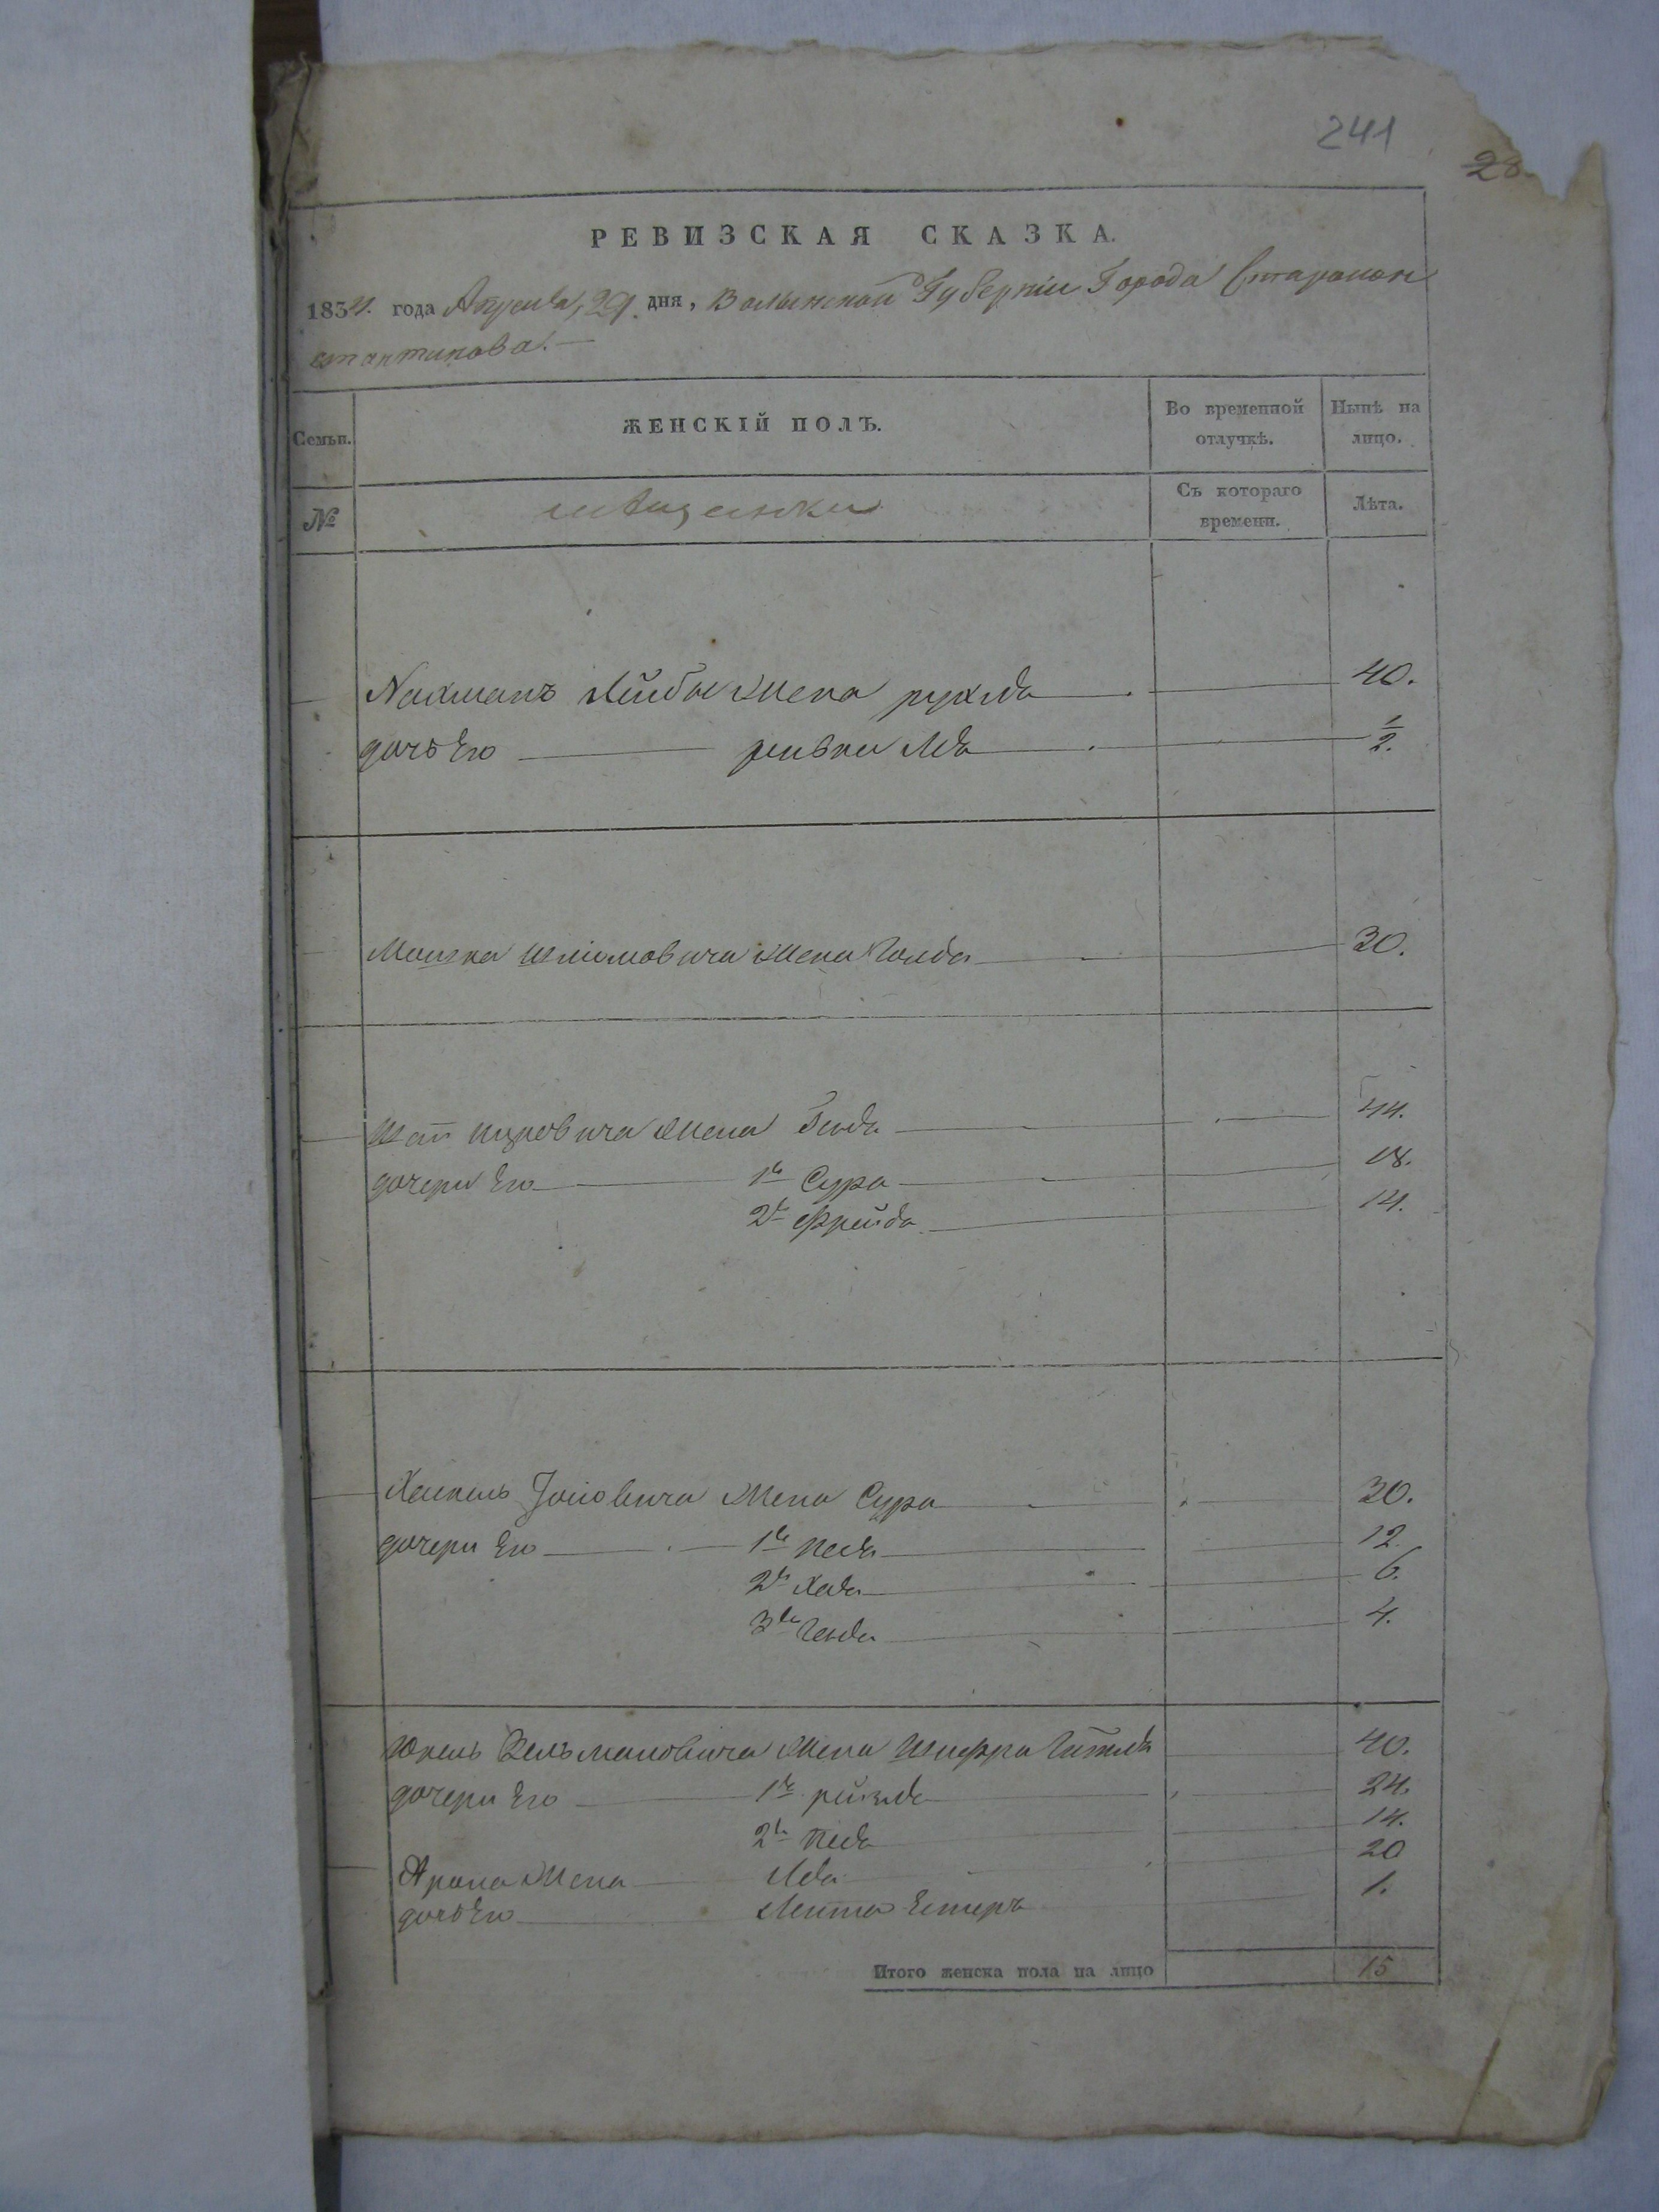 241
28.
РЕВИЗСКАЯ СКАЗКА.
1834. года Апреля, 29. дня, Волынской Губерніи Города Старокон
стантинова. —
Семьи.
ЖЕНСКІЙ ПОЛЪ.
Во временной отлучкѣ.
Нынѣ на лицо.
№
мещанки
Съ котораго времени.
Лѣта.
Нахмана Лейбы жена рухля 40.
дочь Его ривка Лея 1/2.
Мошка Шліомовича жена Голда 30.
жена 44.
дочери Его 1я Сура 18.
2я Фрейда 14.
Хаскель жена Сура 30.
дочери Его 1я Песя 12.
2я Хая 6.
3я 4.
Юкель Зельмановича жена Шифра Гитля 40.
дочери Его 1я рейзля 24.
2я Песя 14.
Арона жена Лея 20
дочь Его Естеръ 1.
Итого женска пола на лицо 15